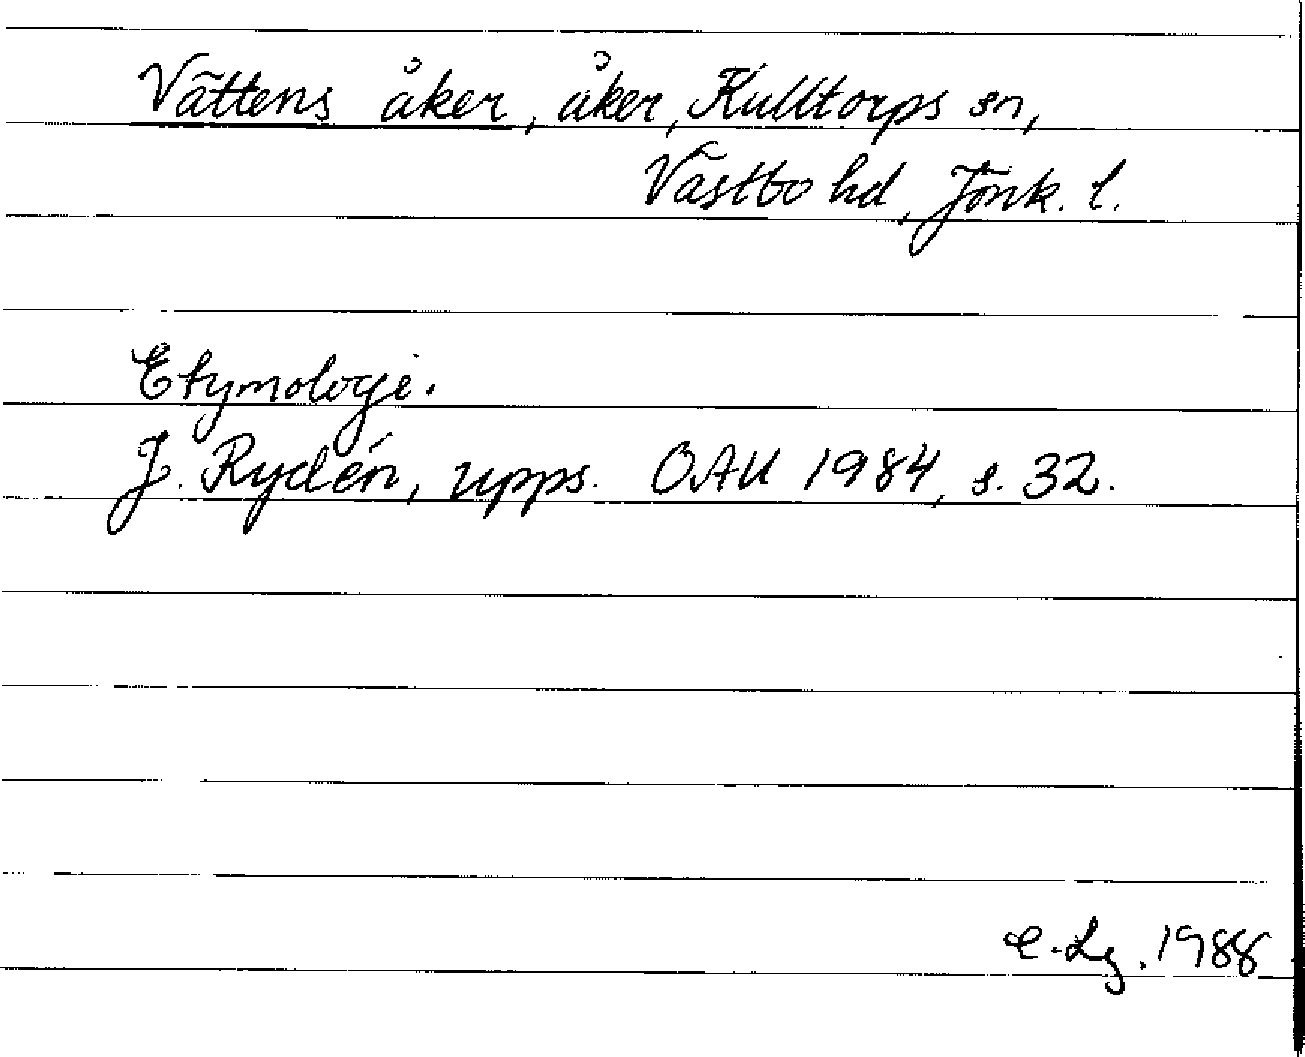 Vättens åker, åker, Kulltorps sn,
Västbo hd, Jönk. l.
Etymologi.
J. Rydén, upps. OAU 1984, s. 32.
C. Lg. 1988